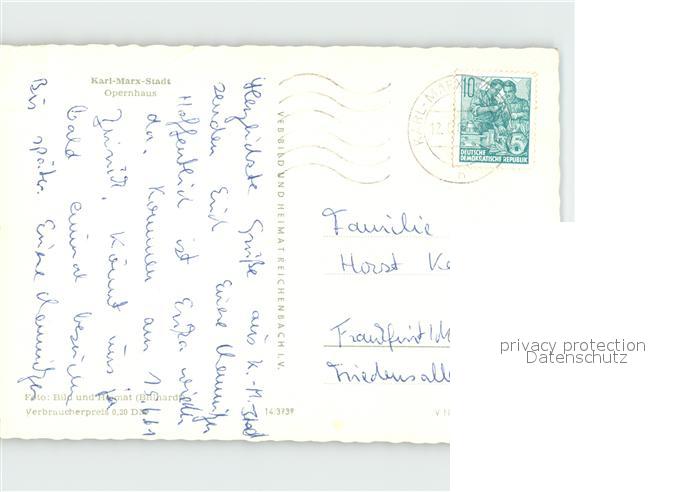 Karl-Marx-Stadt
Opernhaus
Herzlichste Grüße aus K.-M.-Stadt
senden Eure
Hoffentlich ist Erika wieder
da. Kommen am 19.
zurück. Könnt uns ja
bald einmal besuchen
Bis später Eure
Foto: Bild und Heimat
Verbraucherpreis 0,20 DM
14/3739
VEB BILD UND HEIMAT REICHENBACH I. V.
KARL-MARX
12.
n
10
5
DEUTSCHE
DEMOKRATISCHE REPUBLIK
Familie
Horst Ke
Frankfurt/M
Friedensall
V N
privacy protection
Datenschutz